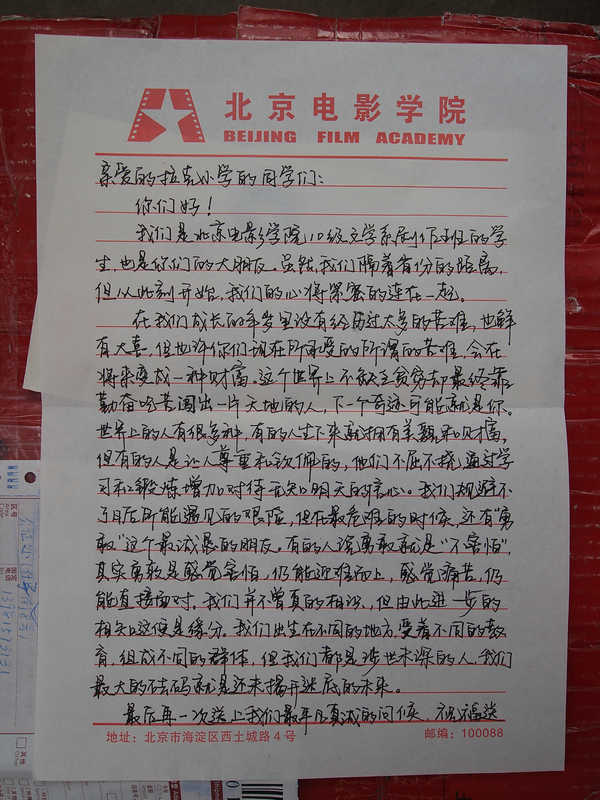 北京电影学院
BEIJING FILM ACADEMY
亲爱的拉克小学的同学们:
你们好!
我们是北京电影学院10级文学系剧作班的学
生,也是你们的大朋友。虽然我们隔着省份的距离,
但从此刻开始,我们的心将紧密的连在一起。
在我们成长的年岁里没有经历过太多的苦难,也鲜
有大喜,但也许你们现在所承受的所谓的苦难,会在
将来变成一种财富。这个世界上不缺乏贫穷却最终靠
勤奋吃苦闯出一片天地的人,下一个奇迹可能就是你。
世界上的人有很多种,有的人生下来就拥有美貌和财富,
但有的人是让人尊重和钦佩的,他们不屈不挠,通过学
习和锻炼增加对待无知明天的信心。我们规避不
了日后所能遇见的艰险,但在最危难的时候,还有“勇
敢”这个最诚恳的朋友。有的人说勇敢就是“不害怕”,
其实勇敢是感觉害怕,仍能迎难而上,感觉痛苦,仍
能直接面对。我们并不曾真的相识,但由此进一步的
相知这便是缘分。我们出生在不同的地方,受着不同的教
育,组成不同的群体,但我们都是涉世未深的人,我们
最大的砝码就是还未揭开谜底的未来。
最后再一次送上我们最平凡真诚的问候,祝福送
地址:北京市海淀区西土城路4号 邮编:100088